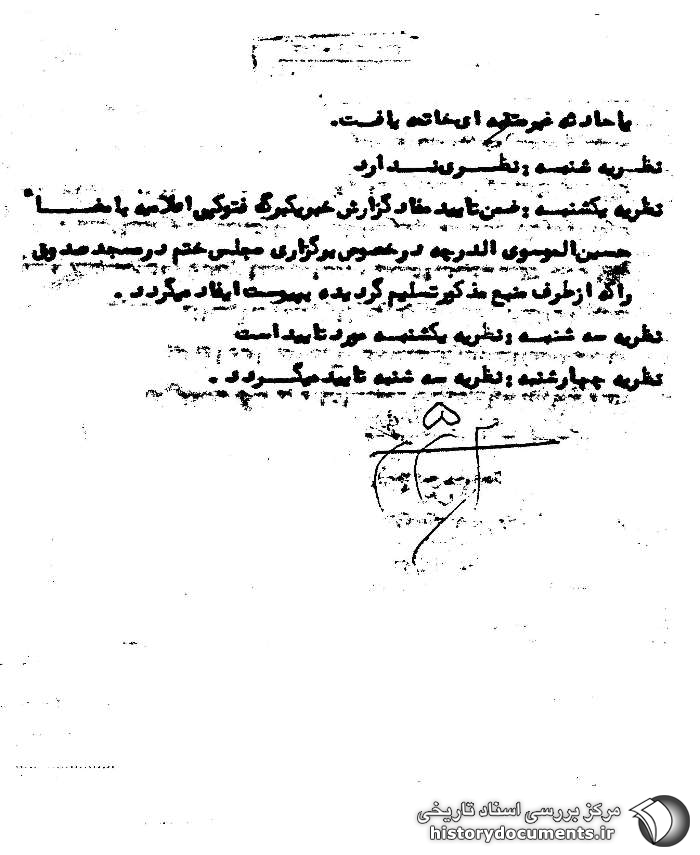 یا حادثه غیرمنتظره ای خاتمه یافت.
نظریه شنبه : نظری ندارد
نظریه یکشنبه : ضمن تایید مفاد گزارش خبر یکبرگ فتوکپی اعلامیه با مضا"
حسین الموسوی الدرچه در خصوص برگزاری مجلس ختم در مسجد صدوق
را که از طرف منبع مذکور تسلیم گردیده بپیوست ایفاد میگردد .
نظریه سه شنبه : نظریه یکشنبه مورد تایید است
نظریه چهارشنبه : نظریه سه شنبه تایید میگردد .
۵
مرکز بررسی اسناد تاریخی
historydocuments.ir